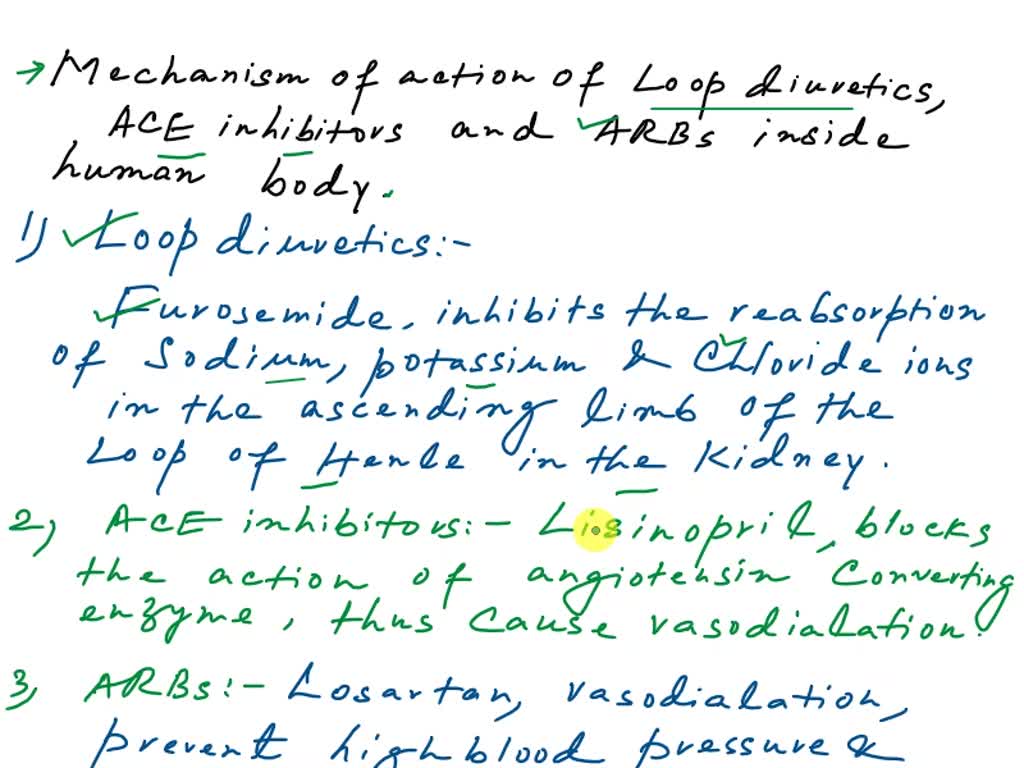 → Mechanism of action of Loop diuretics,
ACE inhibitors and ARBs inside
human body.
1) Loop diuretics:-
Furosemide, inhibits the reabsorption
of Sodium, potassium & Chloride ions
in the ascending limb of the
Loop of Henle in the Kidney.
2) ACE inhibitors:- Lisinopril, blocks
the action of angiotensin Converting
enzyme, thus cause vasodialation.
3) ARBs:- Losartan, vasodialation,
prevent high blood pressure &